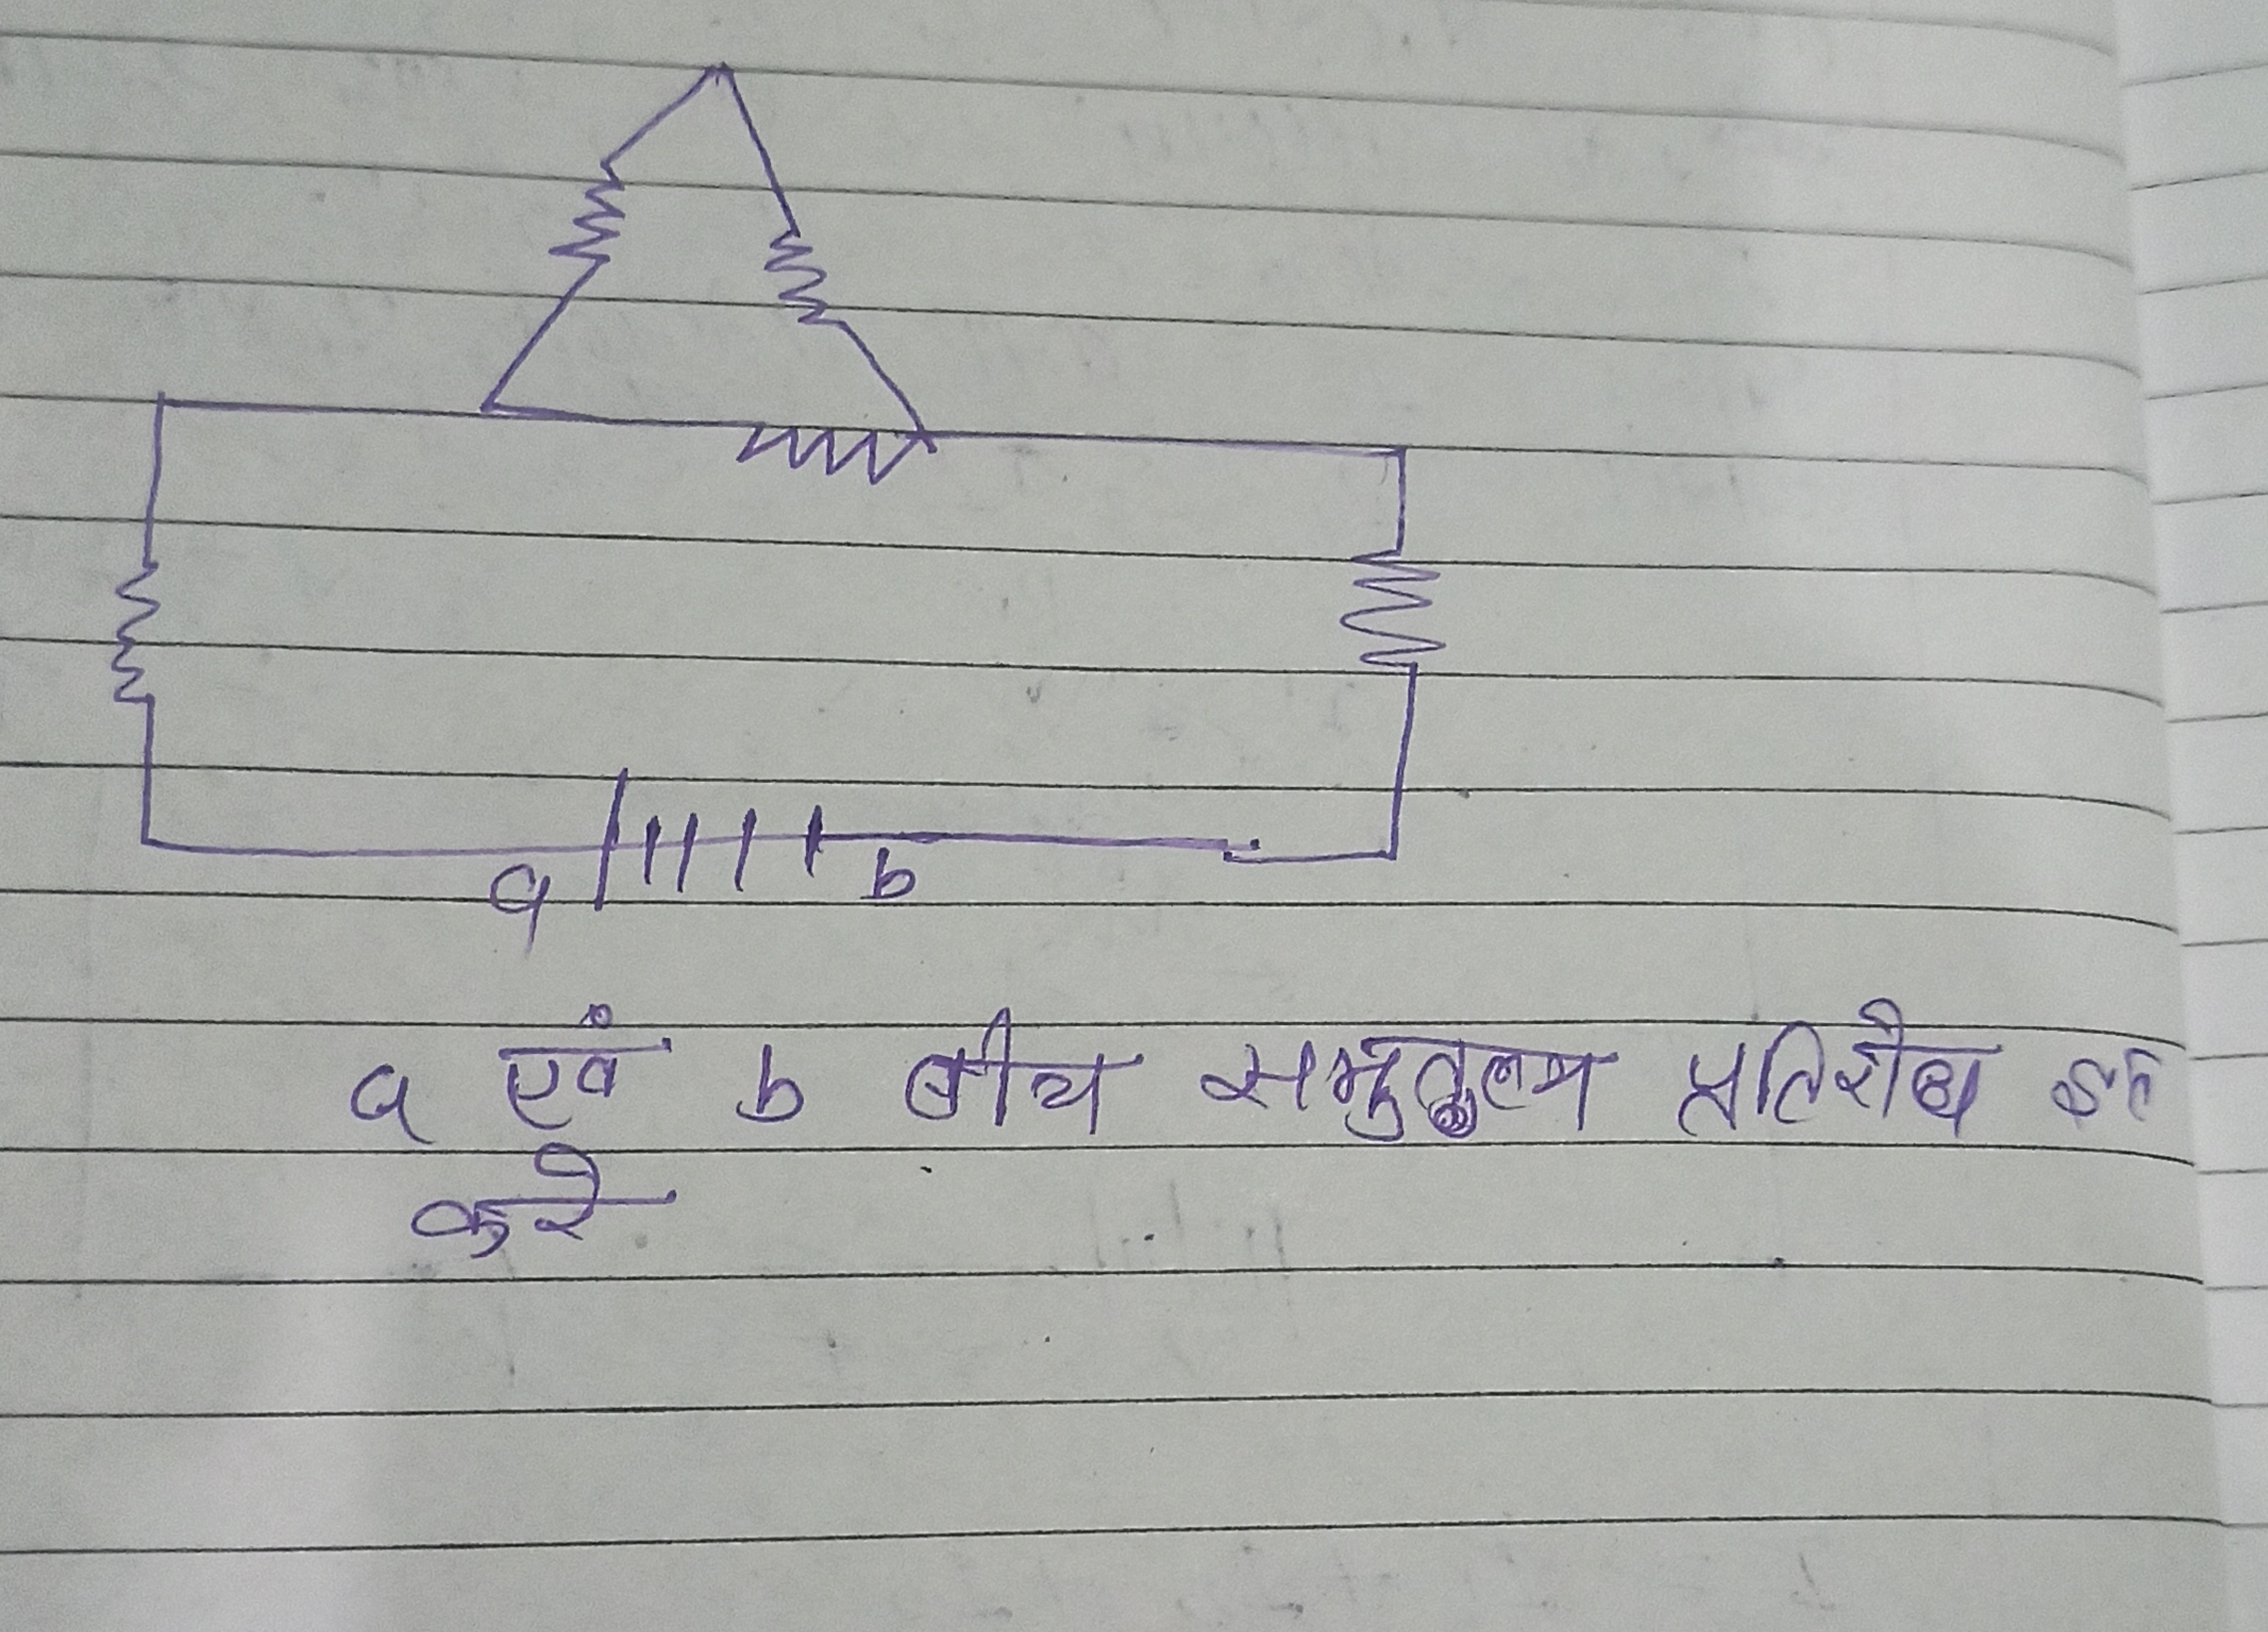 a b
a एवं b बीच समुतुल्य प्रतिरोध
करे